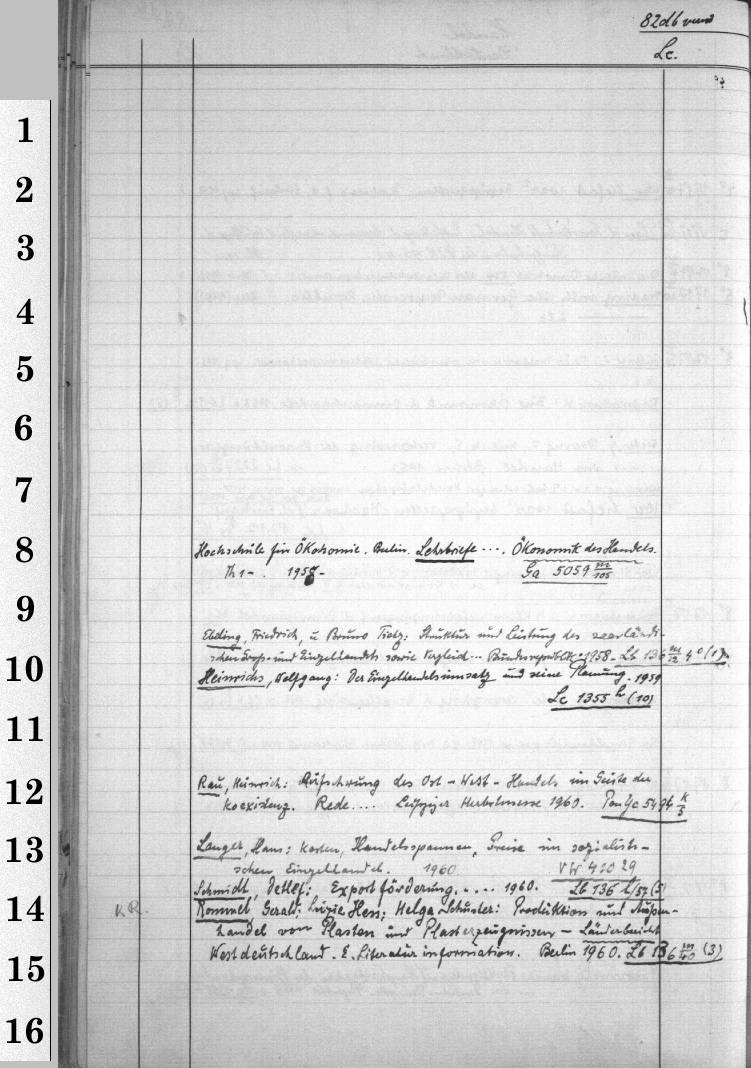 82db
Lc.
1
2
3
4
5
6
7
8
9
10
11
12
13
14
15
16
Hochschule für Ökonomie. Berlin. Lehrbriefe .... Ökonomik des Handels.
Th 1- . 1958-
Ga 5059 m/105
Ebeling, Friedrich, u Bruno Tietz: Struktur und Leistung des saarländi-
schen Gross- und Einzelhandels sowie Vergleich ... Bundesrepublik. 1958. Lb 136 m/12 4° (1)
Heinrichs, Wolfgang: Der Einzelhandelsumsatz und seine Planung. 1959
Lc 1355 h (10)
Rau, Heinrich: Aufschwung des Ost-West-Handels im Geiste der
Koexistenz. Rede .... Leipziger Herbstmesse 1960. 5494 k/5
Langer, Hans: Kosten, Handelsspannen, Preise im sozialisti-
schen Einzelhandel. 1960. VW 420 29
Schmidt, Detlef: Exportförderung. .... 1960. Lb 136 l/57 (5)
K.R. Rommel, Gerald; Luzie Hen; Helga Schuster: Produktion und Außen-
handel von Plasten und Plasterzeugnissen - Länderbericht
Westdeutschland. E. Literaturinformation. Berlin 1960. Lb 136 m/40 (3)